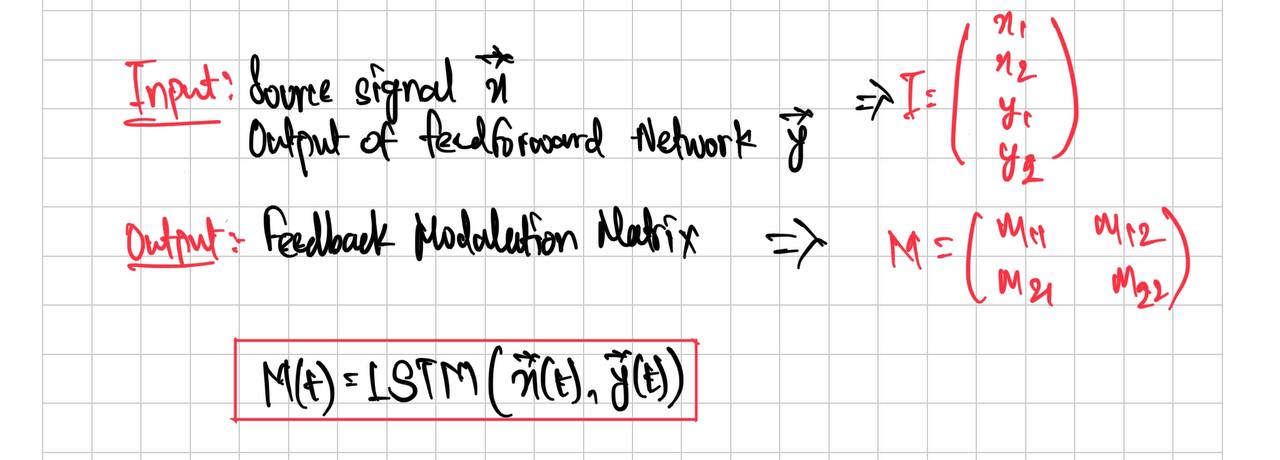 Input: Source signal x⃗
Output of feedforward Network y⃗ ⇒ I = (x1 x2 y1 y2)
Output: Feedback Modulation Matrix ⇒ M = (m11 m12
m21 m22)
M(t) = LSTM(x⃗(t), y⃗(t))